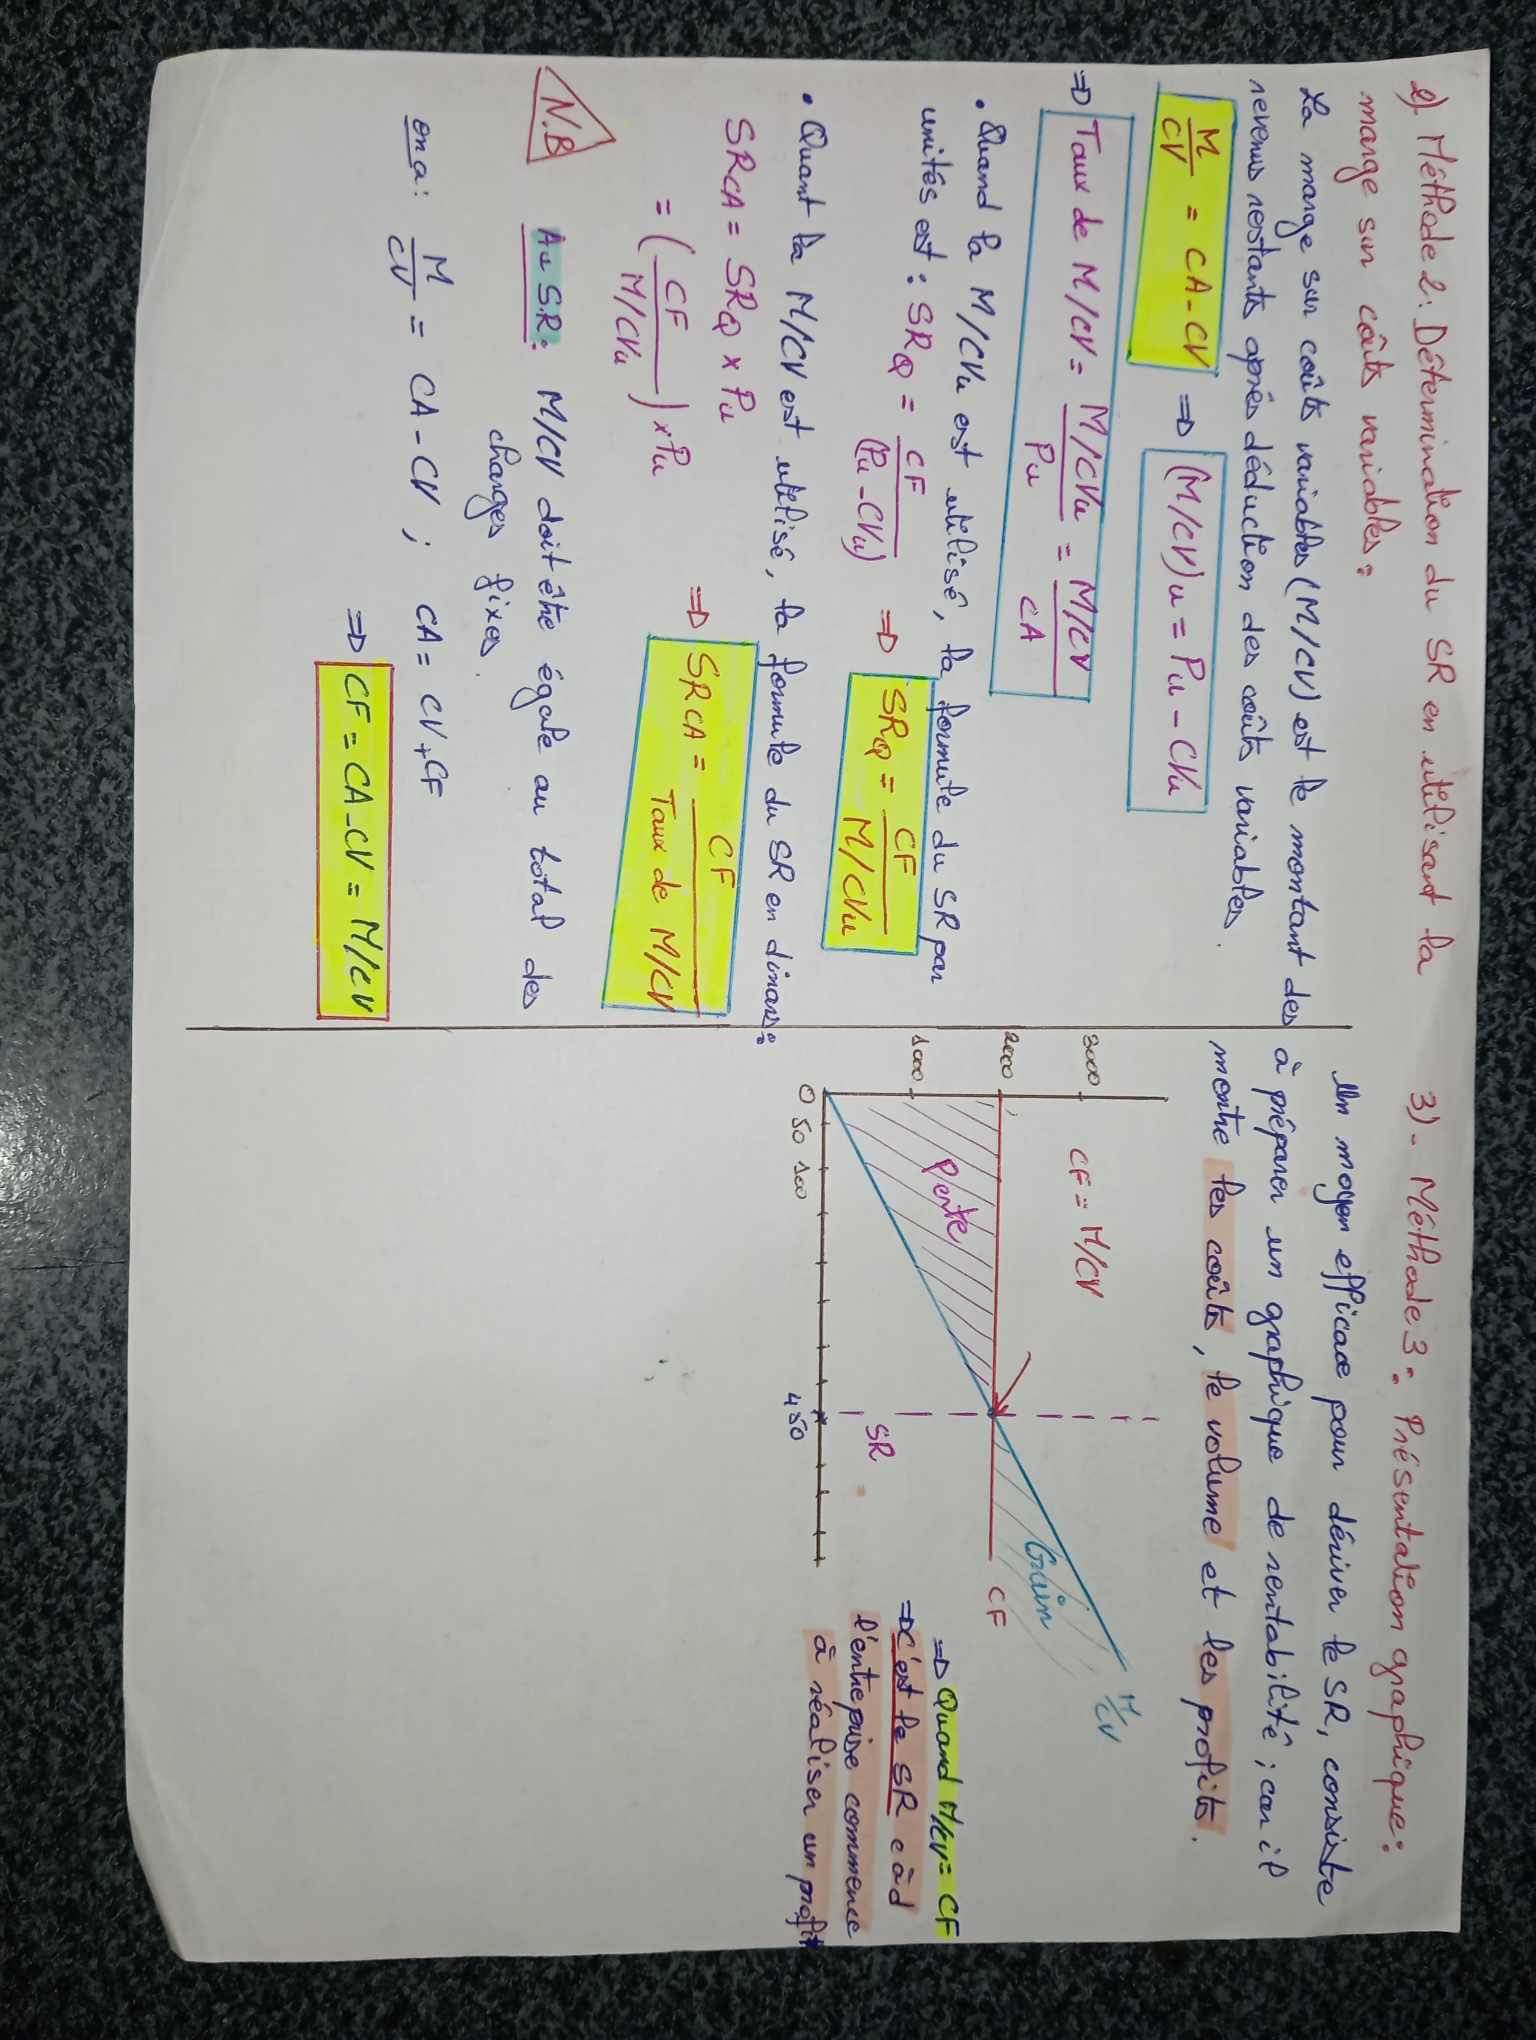 2). Méthode 2: Détermination du SR en utilisant la
marge sur coûts variables:
La marge sur coûts variables (M/CV) est le montant des
revenus restants après déduction des coûts variables.
M/CV = CA - CV ⇒ (M/CV)u = Pu - CVu
⇒ Taux de M/CV = M/CVu / Pu = M/CV / CA
• Quand la M/CVu est utilisé, la formule du SR par
unités est: SRQ = CF / (Pu - CVu) ⇒ SRQ = CF / M/CVu
• Quant la M/CV est utilisé, la formule du SR en dinars:
SRCA = SRQ × Pu
= (CF / M/CVu) × Pu ⇒ SRCA = CF / Taux de M/CV
N.B Au S.R: M/CV doit être égale au total des
charges fixes.
on a: M/CV = CA - CV ; CA = CV + CF
⇒ CF = CA - CV = M/CV
3). Méthode 3: Présentation graphique:
Un moyen efficace pour dériver le SR, consiste
à préparer un graphique de rentabilité ; car il
montre les coûts, le volume et les profits.
M/CV
3000
CF = M/CV
Gain
2000
CF
Perte
1000
SR
0 50 100 450
⇒ Quand M/CV = CF
⇒ C'est le SR càd
l'entreprise commence
à réaliser un profit